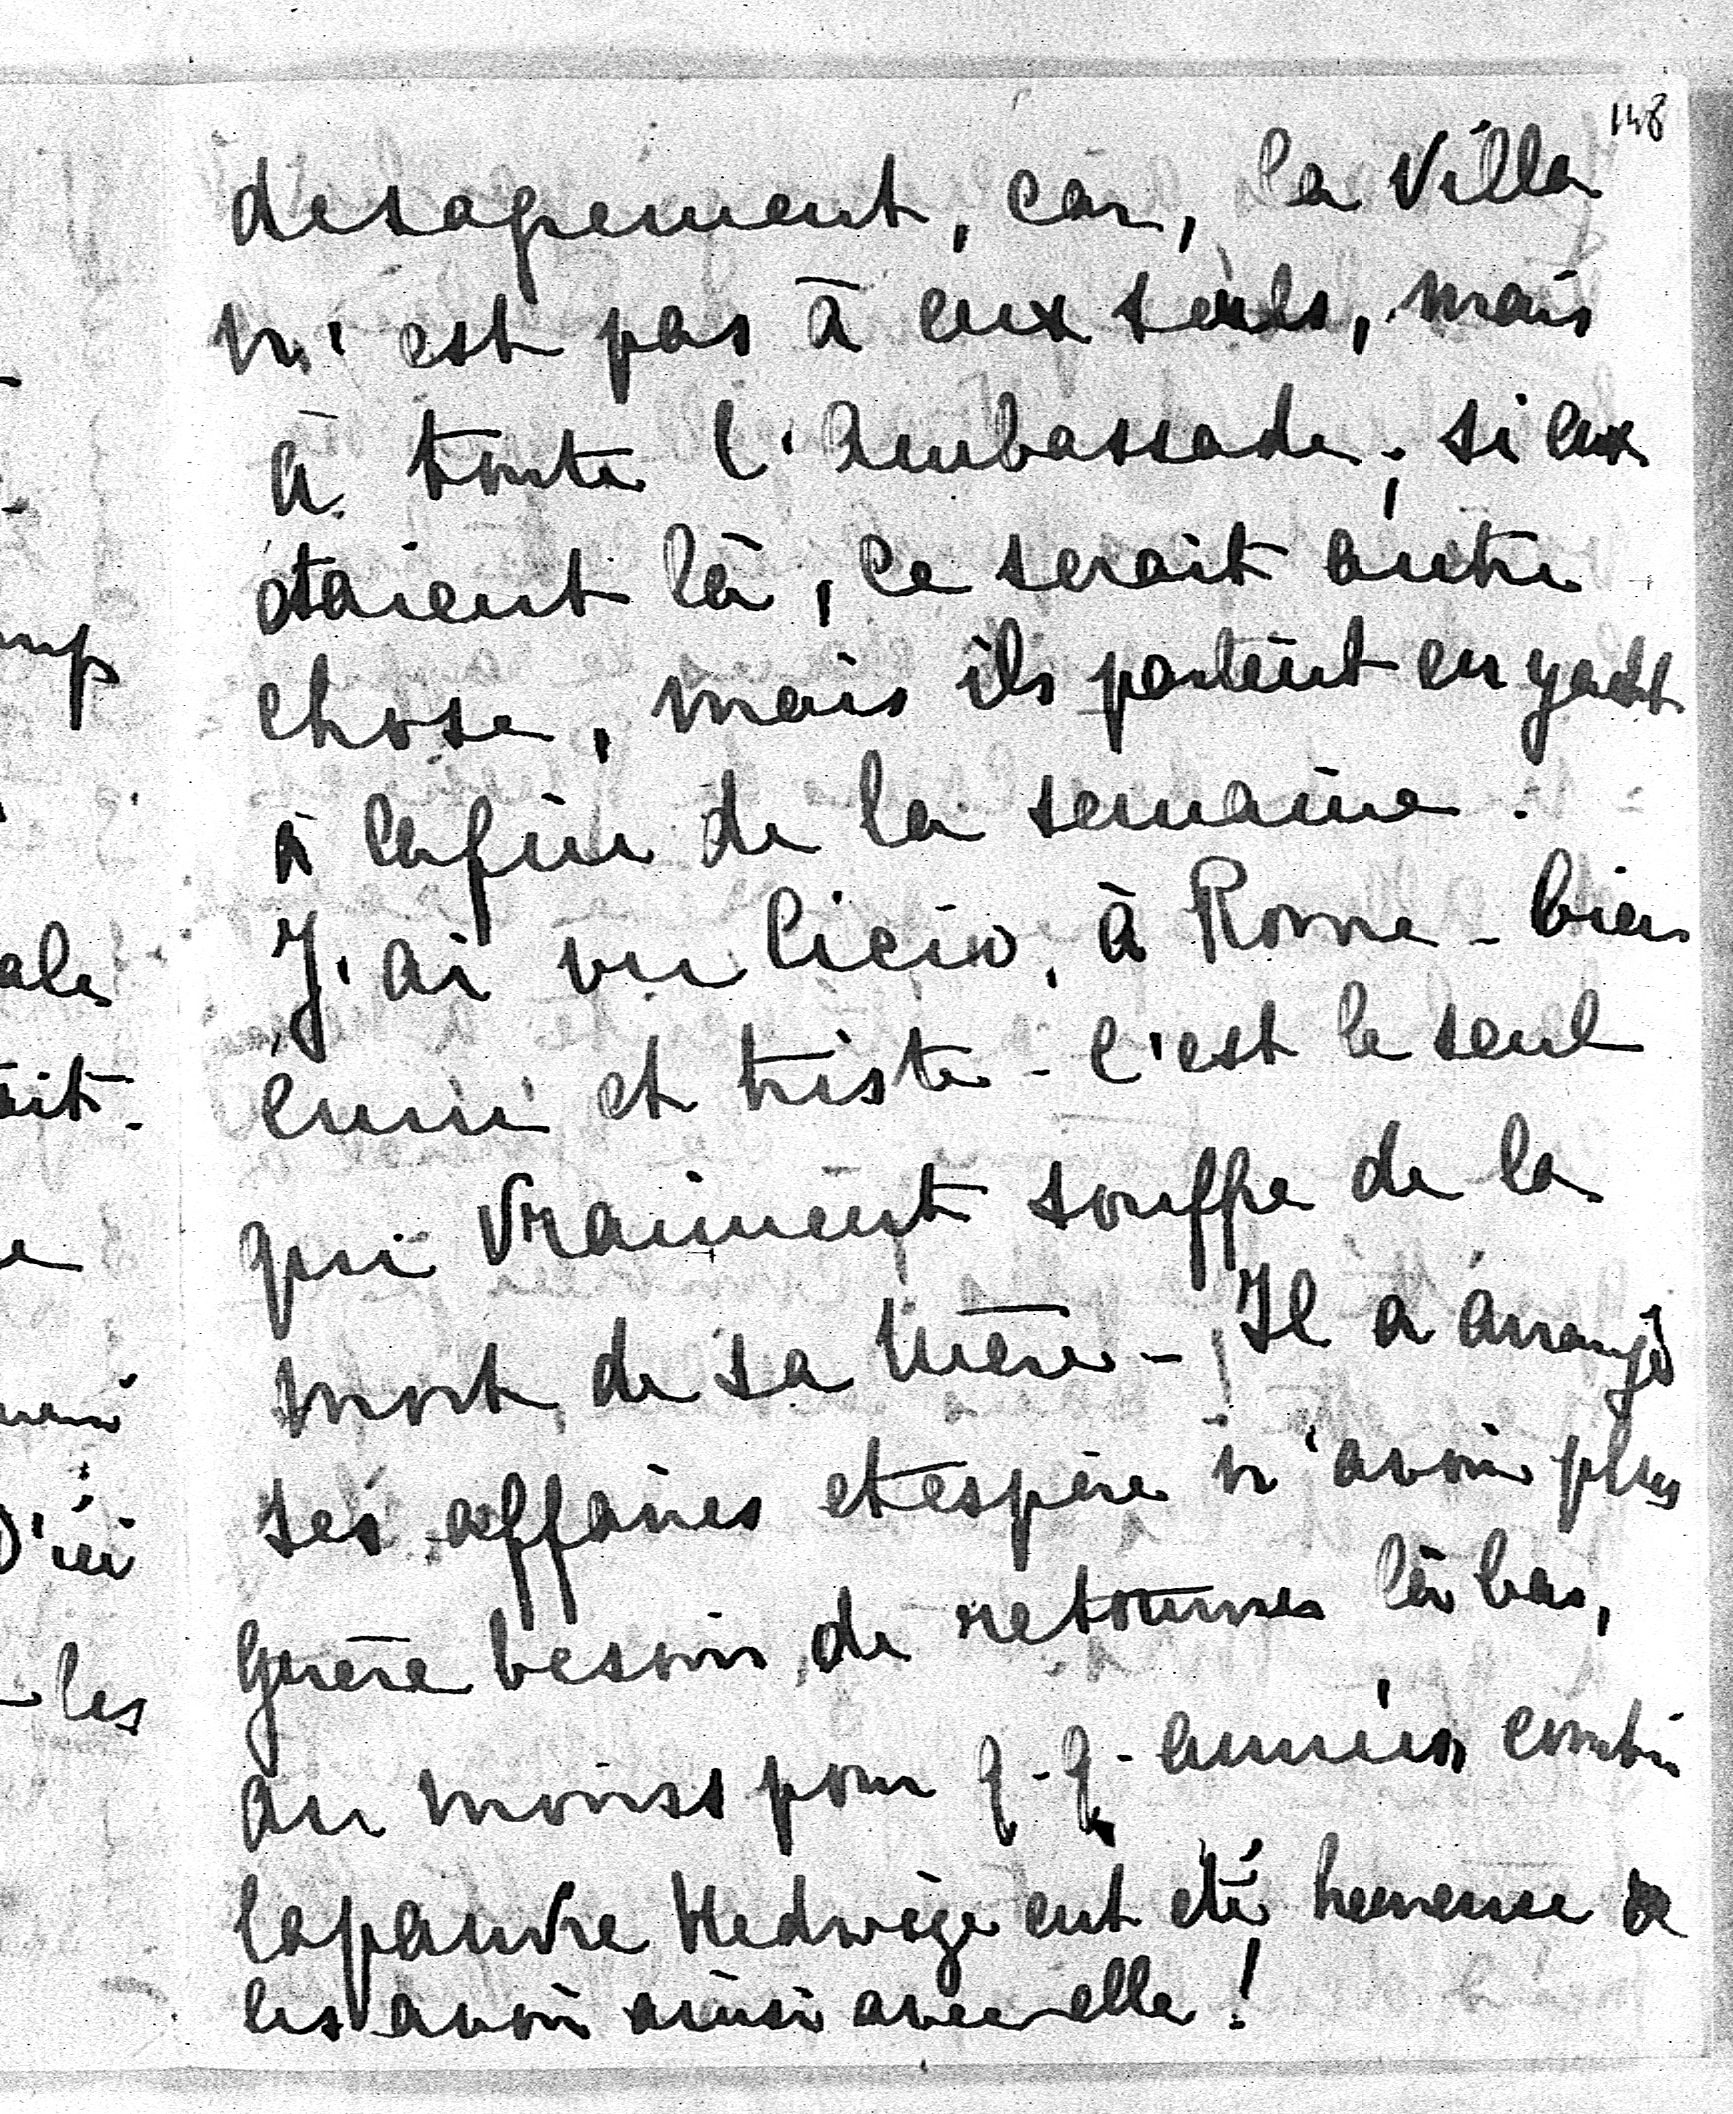 148
desagrement, car, la Villa
n'est pas à eux seuls, mais
à toute l'ambassade; si eux
étaient là, ce serait autre
chose, mais ils partent en yacht
à la fin de la semaine.
J'ai vu Licio, à Rome - bien
ému et triste - C'est le seul
qui vraiment souffre de la
mort de sa mère - Il a arrangé
ses affaires et espère n'avoir plus
guère besoin de retourner là bas,
au moins pour q.q. années, combien
la pauvre Hedwige eut été heureuse de
les avoir ainsi avec elle!
ale
oit.
D'ici
- les